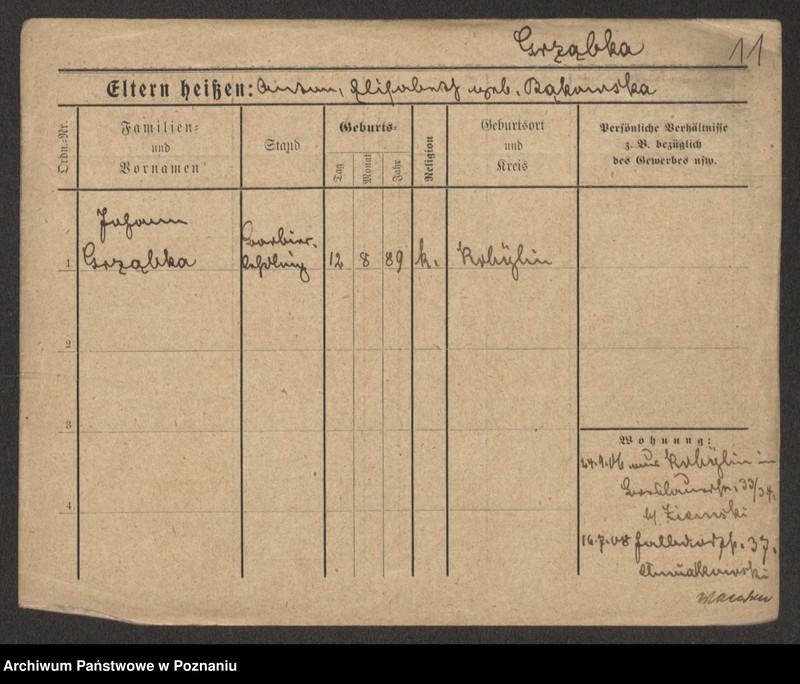 Grząbka
11
Eltern heißen: Anton, Elisabeth geb. Bąkowska
Ordn.-Nr.
Familien- und Vornamen
Stand
Geburts-
Tag
Monat
Jahr
Religion
Geburtsort und Kreis
Persönliche Verhältnisse
z. B. bezüglich
des Gewerbes usw.
Johann
1 Grząbka
Barbier-
lehrling
12 8 89 k. Kobylin
2
3
4
Wohnung:
24.9.06 aus Kobylin in
Breslauerstr. 33/34.
b/ Ziemski
16.7.08 37.
Kwiatkowski
Archiwum Państwowe w Poznaniu